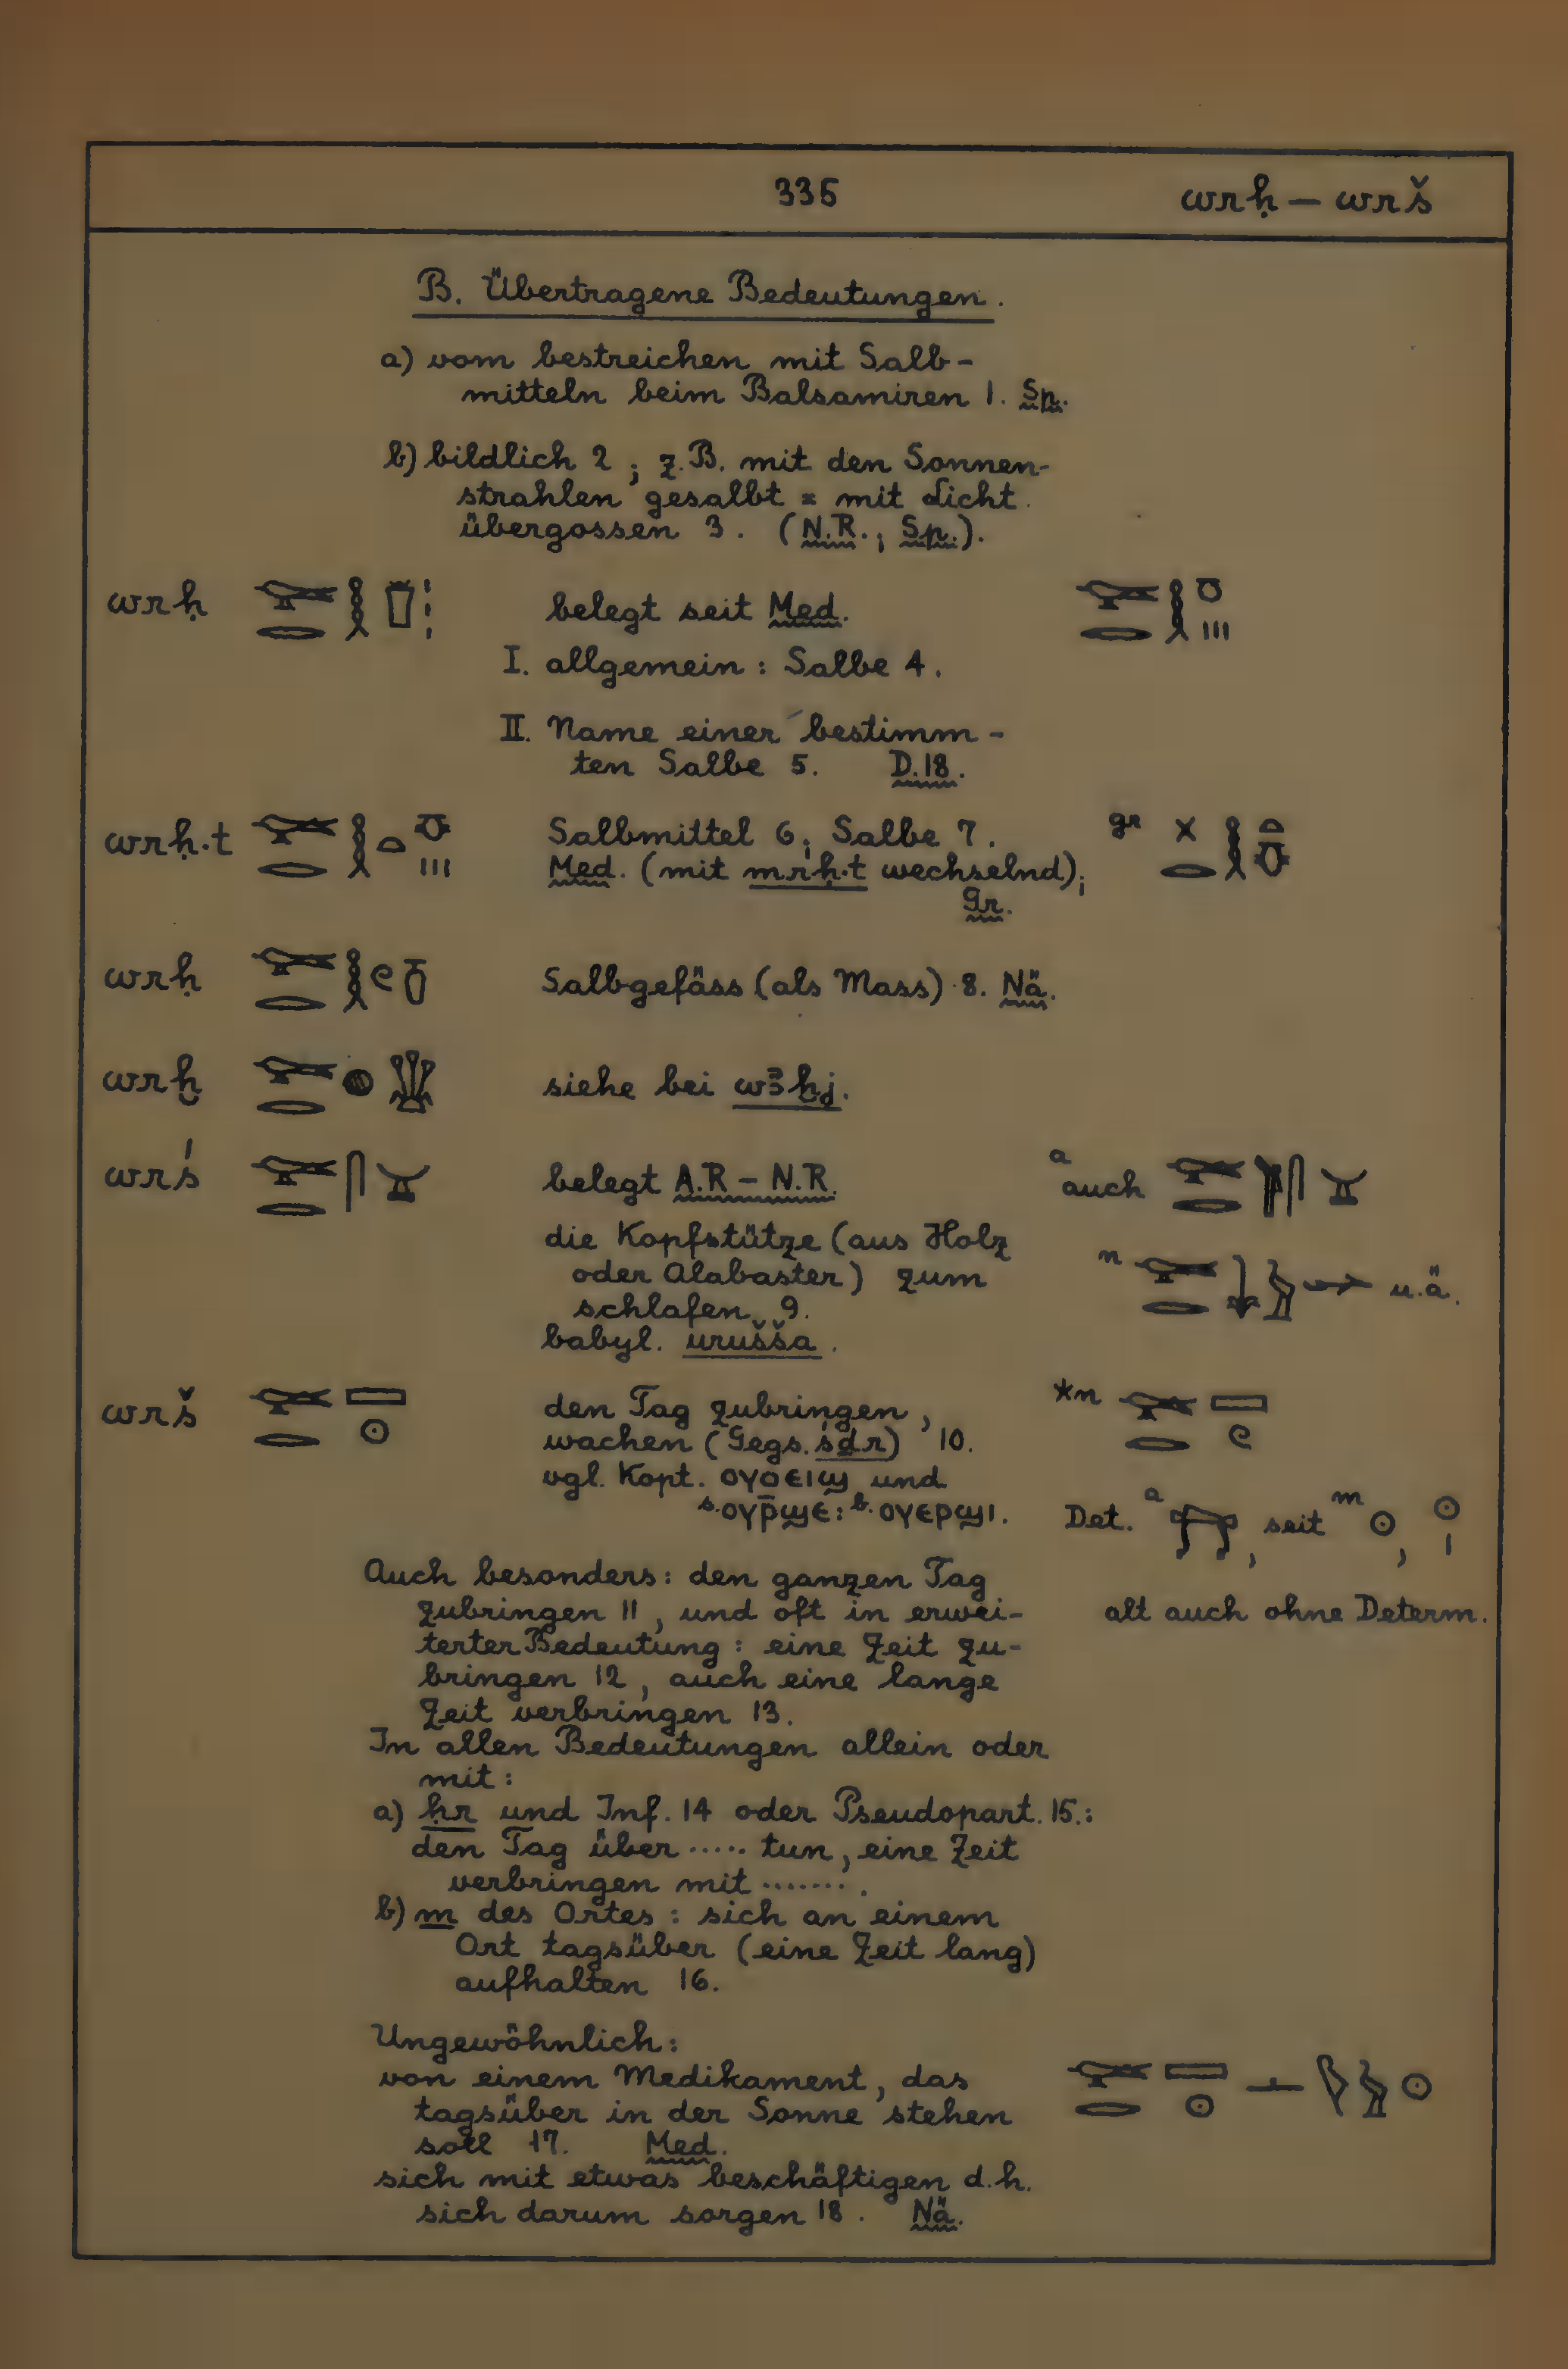 335 wrḥ — wrš
B. Übertragene Bedeutungen.
a) vom bestreichen mit Salb-
mitteln beim Balsamiren 1. Sp.
b) bildlich 2; z.B. mit den Sonnen-
strahlen gesalbt = mit Licht
übergossen 3. (N.R.; Sp.).
wrḥ belegt seit Med.
I. allgemein: Salbe 4.
II. Name einer bestimm-
ten Salbe 5. D.18.
wrḥ.t Salbmittel 6; Salbe 7. gr
Med. (mit mrḥ.t wechselnd);
Gr.
wrḥ Salbgefäss (als Mass) 8. Nä.
wrḫ siehe bei wꜣḫj.
wrś belegt A.R – N.R. a auch
die Kopfstütze (aus Holz
oder Alabaster) zum n u.ä.
schlafen 9.
babyl. urušša.
wrš den Tag zubringen, *n
wachen (Gegs. śḏr) 10.
vgl. Kopt. ⲟⲩⲟⲉⲓϣ und
s. ⲟⲩⲣ̄ϣⲉ: b. ⲟⲩⲉⲣϣⲓ. Det. a , seit m ,
Auch besonders: den ganzen Tag
zubringen 11, und oft in erwei- alt auch ohne Determ.
terter Bedeutung: eine Zeit zu-
bringen 12, auch eine lange
Zeit verbringen 13.
In allen Bedeutungen allein oder
mit:
a) ḥr und Inf. 14 oder Pseudopart. 15.:
den Tag über ..... tun, eine Zeit
verbringen mit ........
b) m des Ortes: sich an einem
Ort tagsüber (eine Zeit lang)
aufhalten 16.
Ungewöhnlich:
von einem Medikament, das
tagsüber in der Sonne stehen
soll 17. Med.
sich mit etwas beschäftigen d.h.
sich darum sorgen 18. Nä.